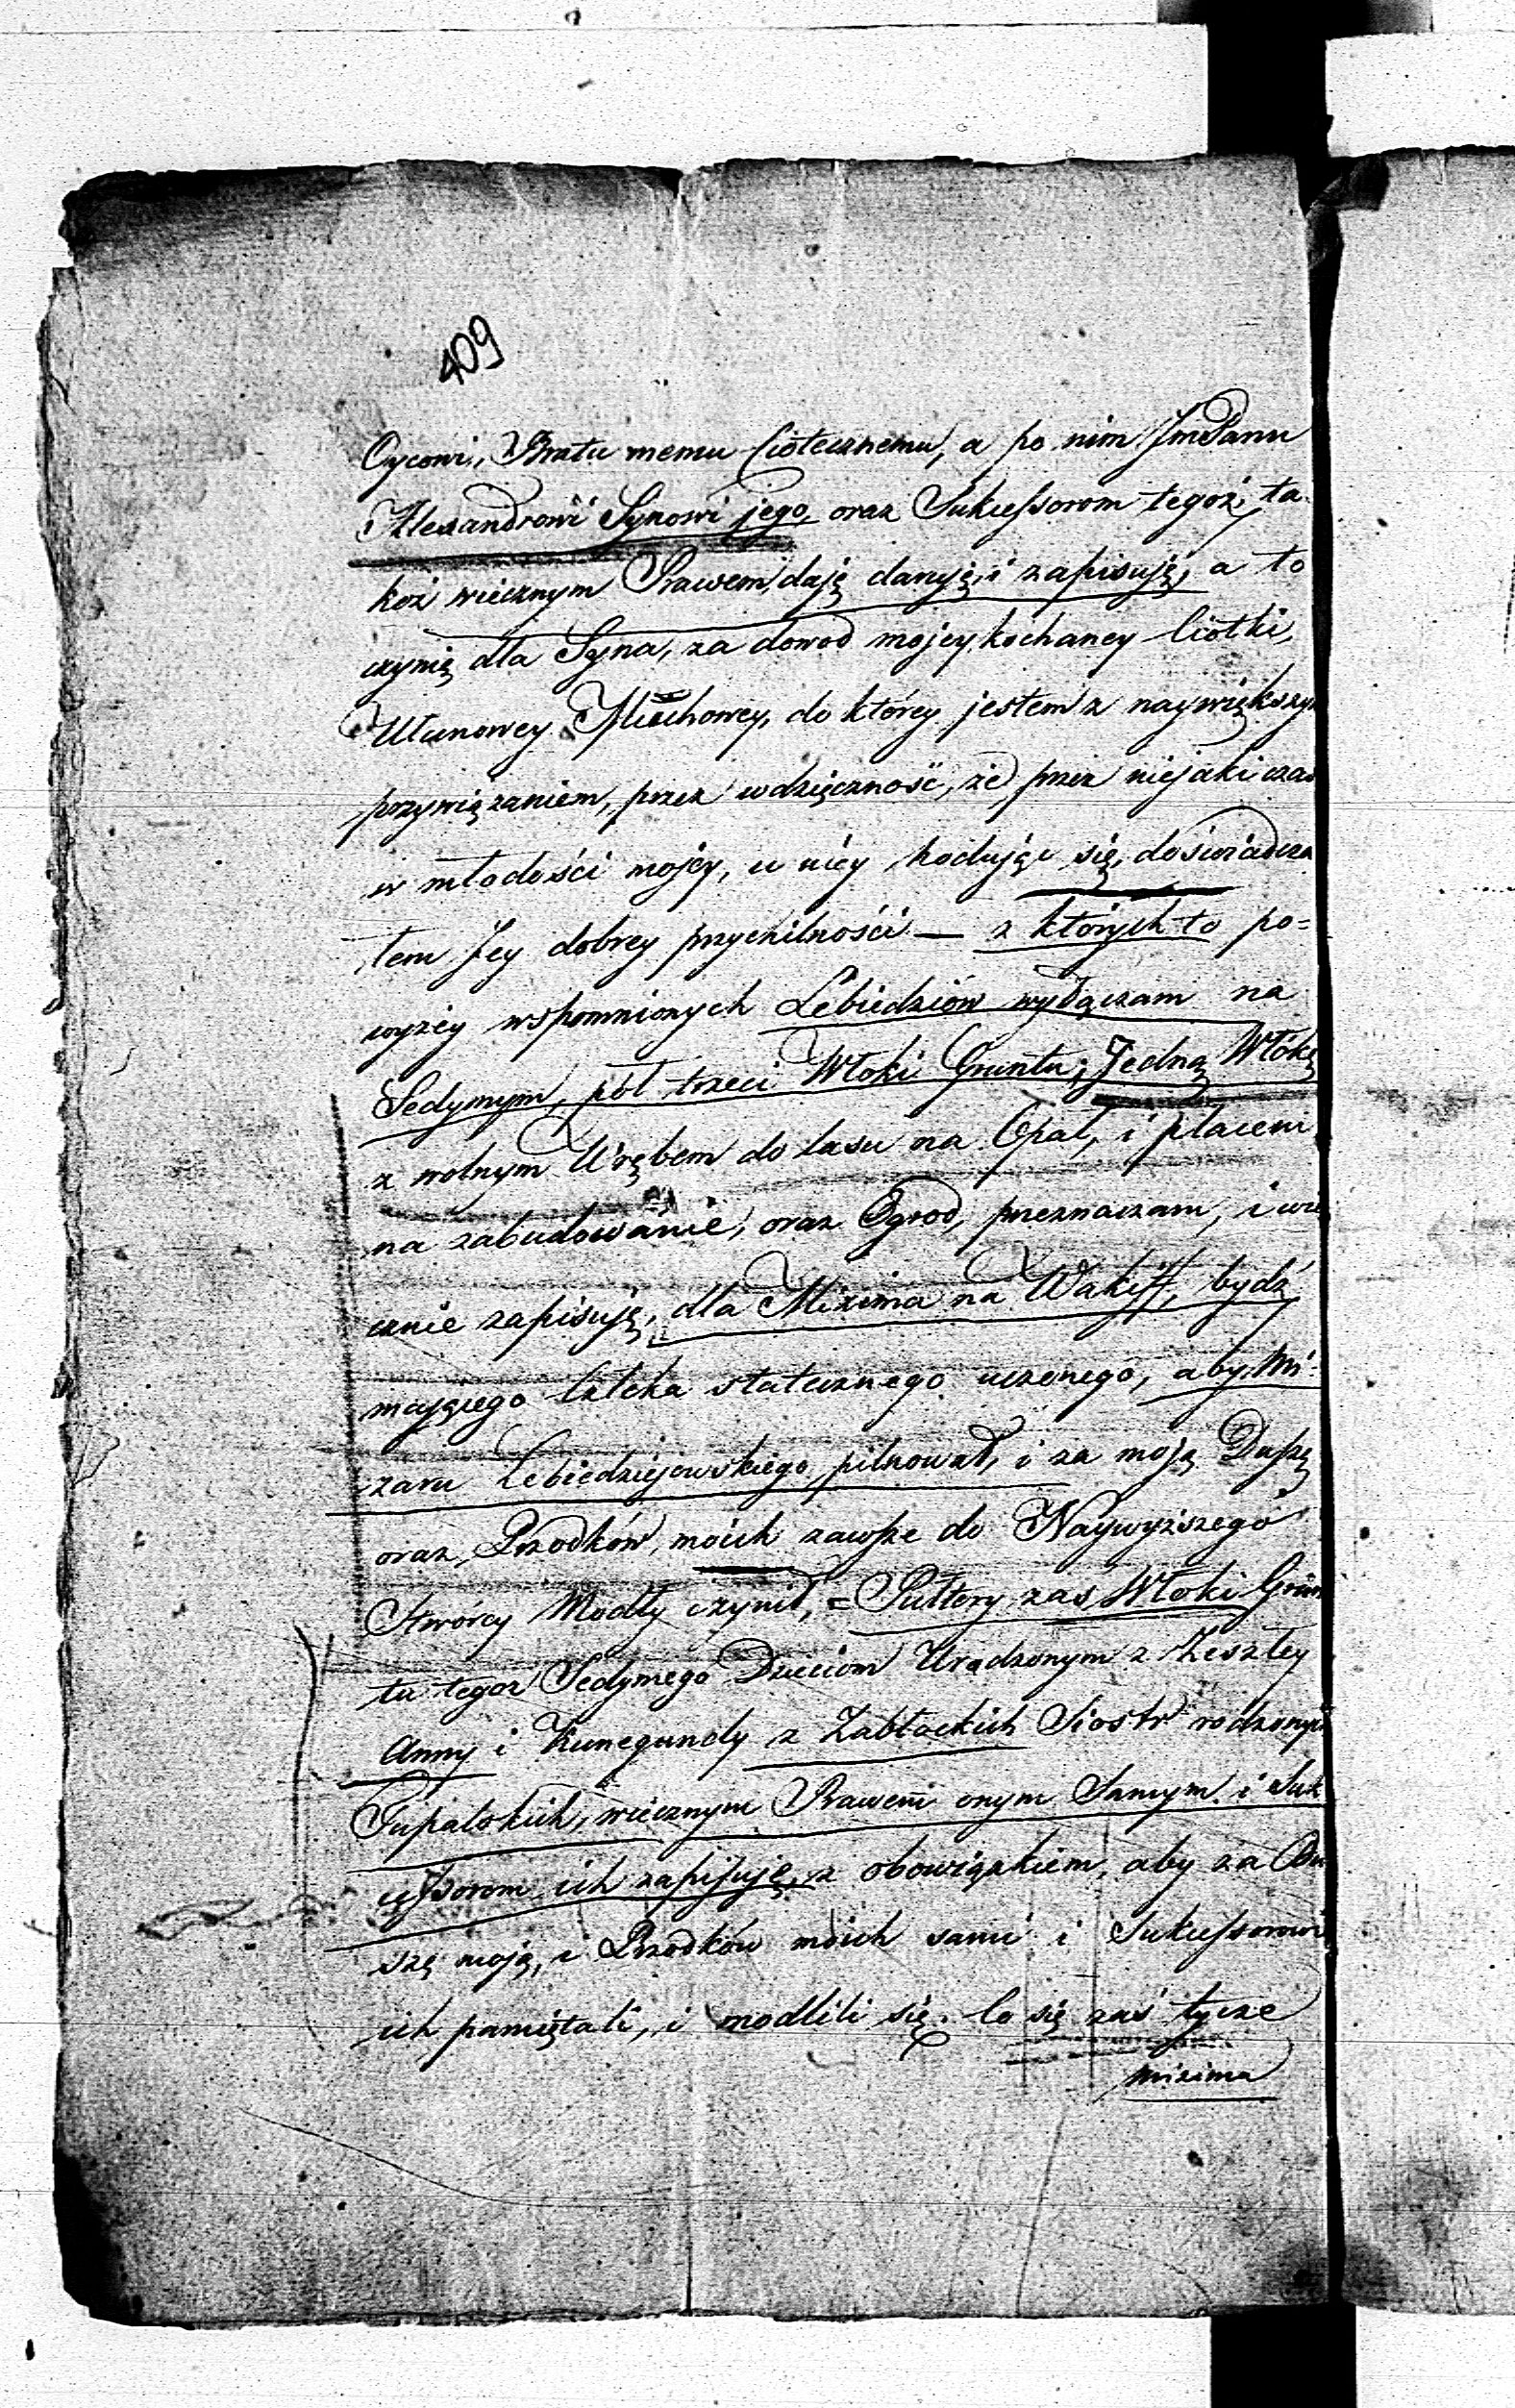 409
Oycowi, Bratu memu Ciotecznemu, a po nim JmPanu
Alexandrowi Synowi jego, oraz Sukcessorom tegoż, ta-
koż wiecznym Prawem, daję daruję, i zapisuję, a to
czynię dla Syna, za dowod mojey kochaney Ciotki,
Ułanowey, do którey jestem z naywiększym
przywiązaniem, przez wdzięczność, że przez niejaki czas
w młodości mojéy, u niéy hodując się, doświadcza
łem Jey dobrey przychilności — z których to po=
wyżey wspomnionych Lebiedziów wyłączam na
Sedymym, pół trzeci Włoki Gruntu; Jedną Włókę
z wolnym Wrębem do lasu na Opał, i placem
na zabudowanie, oraz Ogrod, przeznaczam, i wie
cznie zapisuję, dla Mizima na Wakiff, bydź
mającego Człeka statecznego uczonego, aby Mi-
zaru Lebiedziejewskiego pilnował, i za moją Duszę
oraz Przodków, moich zawsze do Naywyższego
Stwórcy Modły czynił, = Pułtory zaś Włoki Grun
tu tegoż Sedymego Dzieciom Urądzonym z Zeszłey
Anny i Kunegundy z Zabłockich Siostr rodzonych
Tupalskich, wiecznym Prawem onym Samym i Suk
cessorom ich zapisuję, z obowiązkiem, aby za Du
szę moją, i Przodków moich sami i Sukcessorowie
ich pamiętali, i modlili się. Co się zaś tycze
mizima